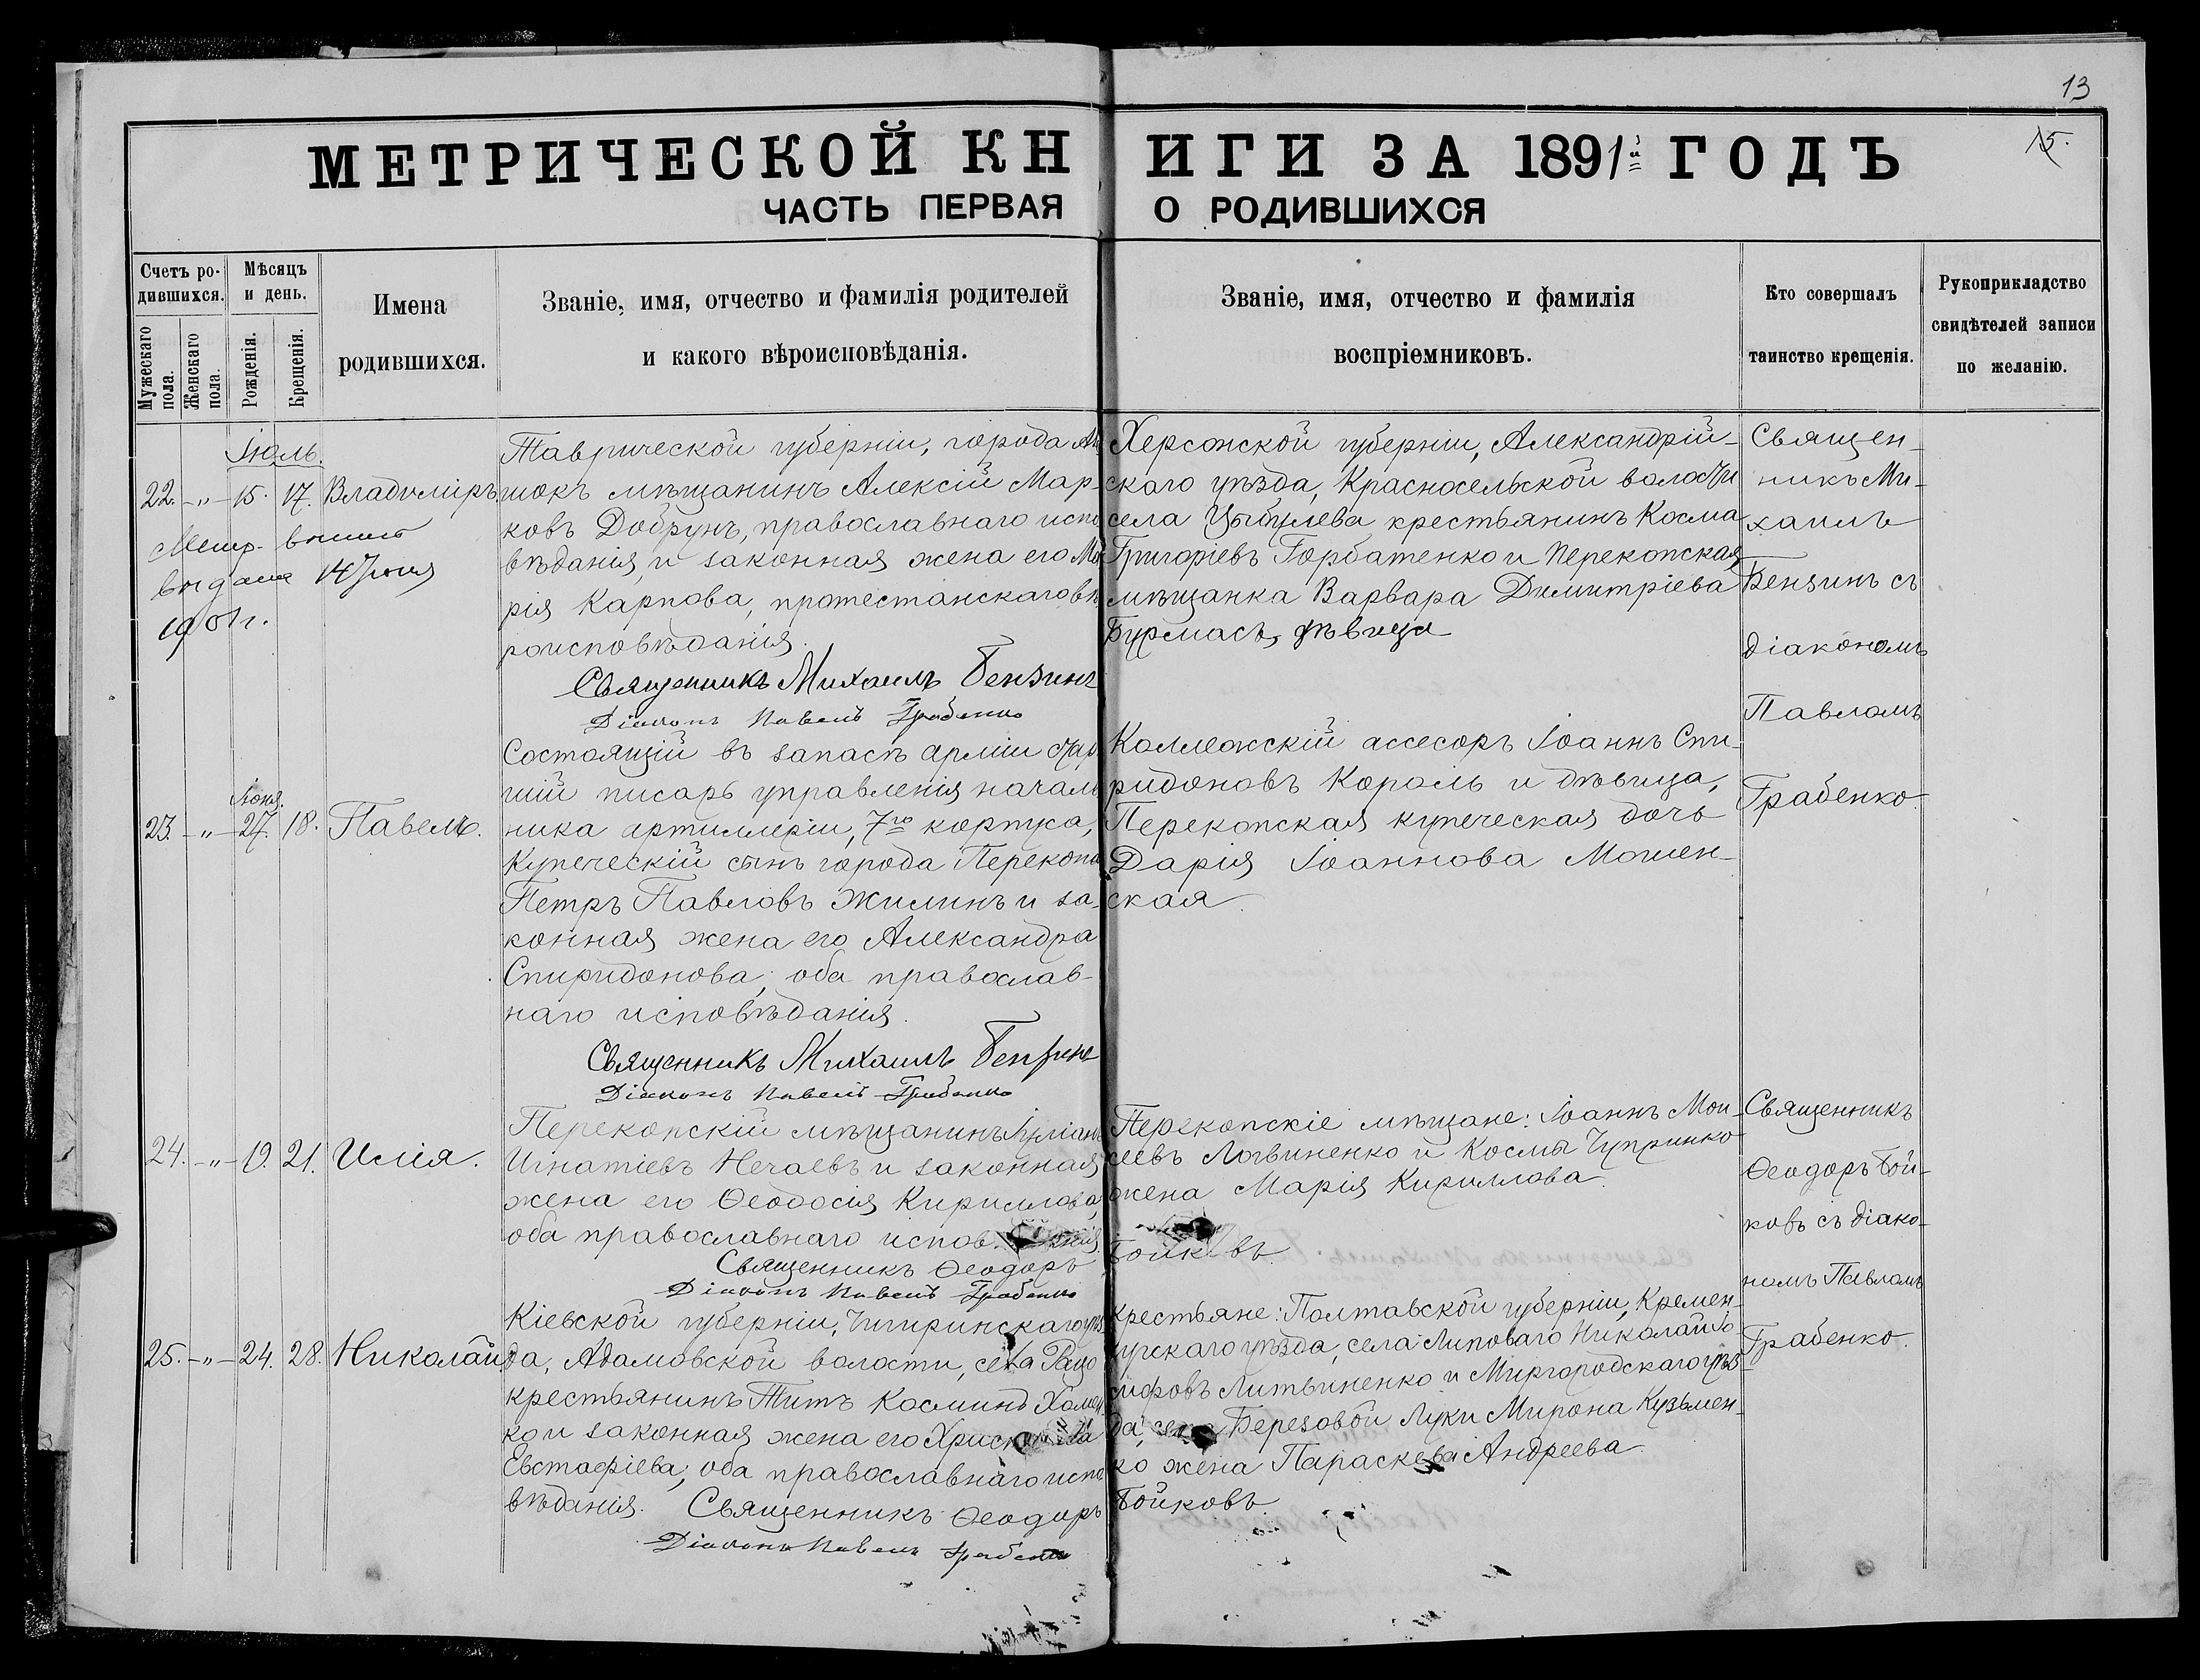 13
15.
МЕТРИЧЕСКОЙ КНИГИ ЗА 1891й ГОДЪ
ЧАСТЬ ПЕРВАЯ О РОДИВШИХСЯ
Счетъ ро-
дившихся.
Мужескаго
пола.
Женскаго
пола.
Мѣсяцъ
и день.
Рожденія.
Крещенія.
Имена
родившихся.
Званіе, имя, отчество и фамилія родителей
и какого вѣроисповѣданія.
Званіе, имя, отчество и фамилія
воспріемниковъ.
Кто совершалъ
таинство крещенія.
Рукоприкладство
свидѣтелей записи
по желанію.
Іюль.
22. -„- 15. 17. Владиміръ.
Метр.
выдана 14 Іюня
1901 г.
Таврической губерніи, города Ал
шокъ мѣщанинъ Алексій Мар-
ковъ Добрунъ, православнаго испо
вѣданія, и законная жена его Ма
рія Карпова, протестанскаго вѣ
роисповѣданія.
Священникъ Михаилъ Бензинъ
Діаконъ Павелъ Грабенко
Херсонской губерніи, Александрій-
скаго уѣзда, Красносельской волости
села Цыбулева крестьянинъ Косма
Григоріевъ Горбатенко и Перекопская
мѣщанка Варвара Димитріева
Бурмасъ, дѣвица
Священ-
никъ Ми-
хаилъ
Бензинъ съ
діакономъ
Павломъ
Грабенко.
Іюня.
23. -„- 27. 18. Павелъ.
Состоящій въ запасѣ арміи стар
шій писарь управленія началь
ника артиллеріи, 7го корпуса,
Купеческій сынъ города Перекопа
Петръ Павловъ Жилинъ и за-
конная жена его Александра
Спиридонова, оба православ-
наго исповѣданія.
Священникъ Михаилъ Бензинъ
Діаконъ Павелъ Грабенко
Коллежскій ассесоръ Іоаннъ Спи-
ридоновъ Король и дѣвица,
Перекопская купеческая дочь
Дарія Іоаннова Мошен-
ская.
24. -„- 19. 21. Илія.
Перекопскій мѣщанинъ Іуліанъ
Игнатіевъ Нечаевъ и законная
жена его Ѳеодосія Кириллова,
оба православнаго испов
Священникъ Ѳеодоръ
Діаконъ Павелъ Грабенко
Перекопскіе мѣщане: Іоаннъ Мои-
сеевъ Логвиненко и Космы Чупринко
жена Марія Кириллова.
Бойковъ.
Священникъ
Ѳеодоръ Бой-
ковъ съ діако-
номъ Павломъ
Грабенко.
25. -„- 24. 28. Николай.
Кіевской губерніи, Чигиринскаго уѣз
да, Адамовской волости, села Рацо
крестьянинъ Титъ Косминъ Хомен
ко и законная жена его
Евстафіева, оба православнаго испо
вѣданія. Священникъ Ѳеодоръ
Діаконъ Павелъ Грабенко
Крестьяне: Полтавской губерніи, Кремен-
чугскаго уѣзда, села Липоваго Николай Іо-
сифовъ Литвиненко и Миргородскаго уѣз-
да, села Березовой Луки Мирона Кузьмен-
ко жена Параскева Андреева.
Бойковъ